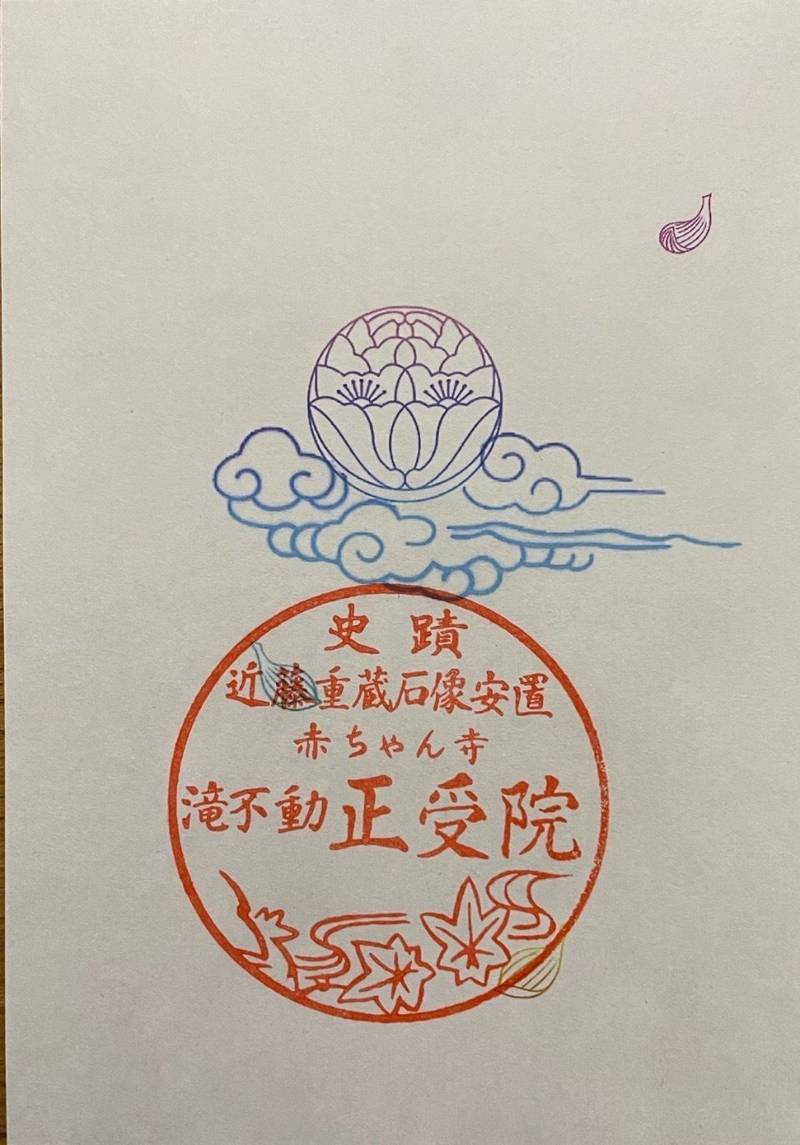 史蹟
近藤重蔵石像安置
赤ちゃん寺
滝不動正受院